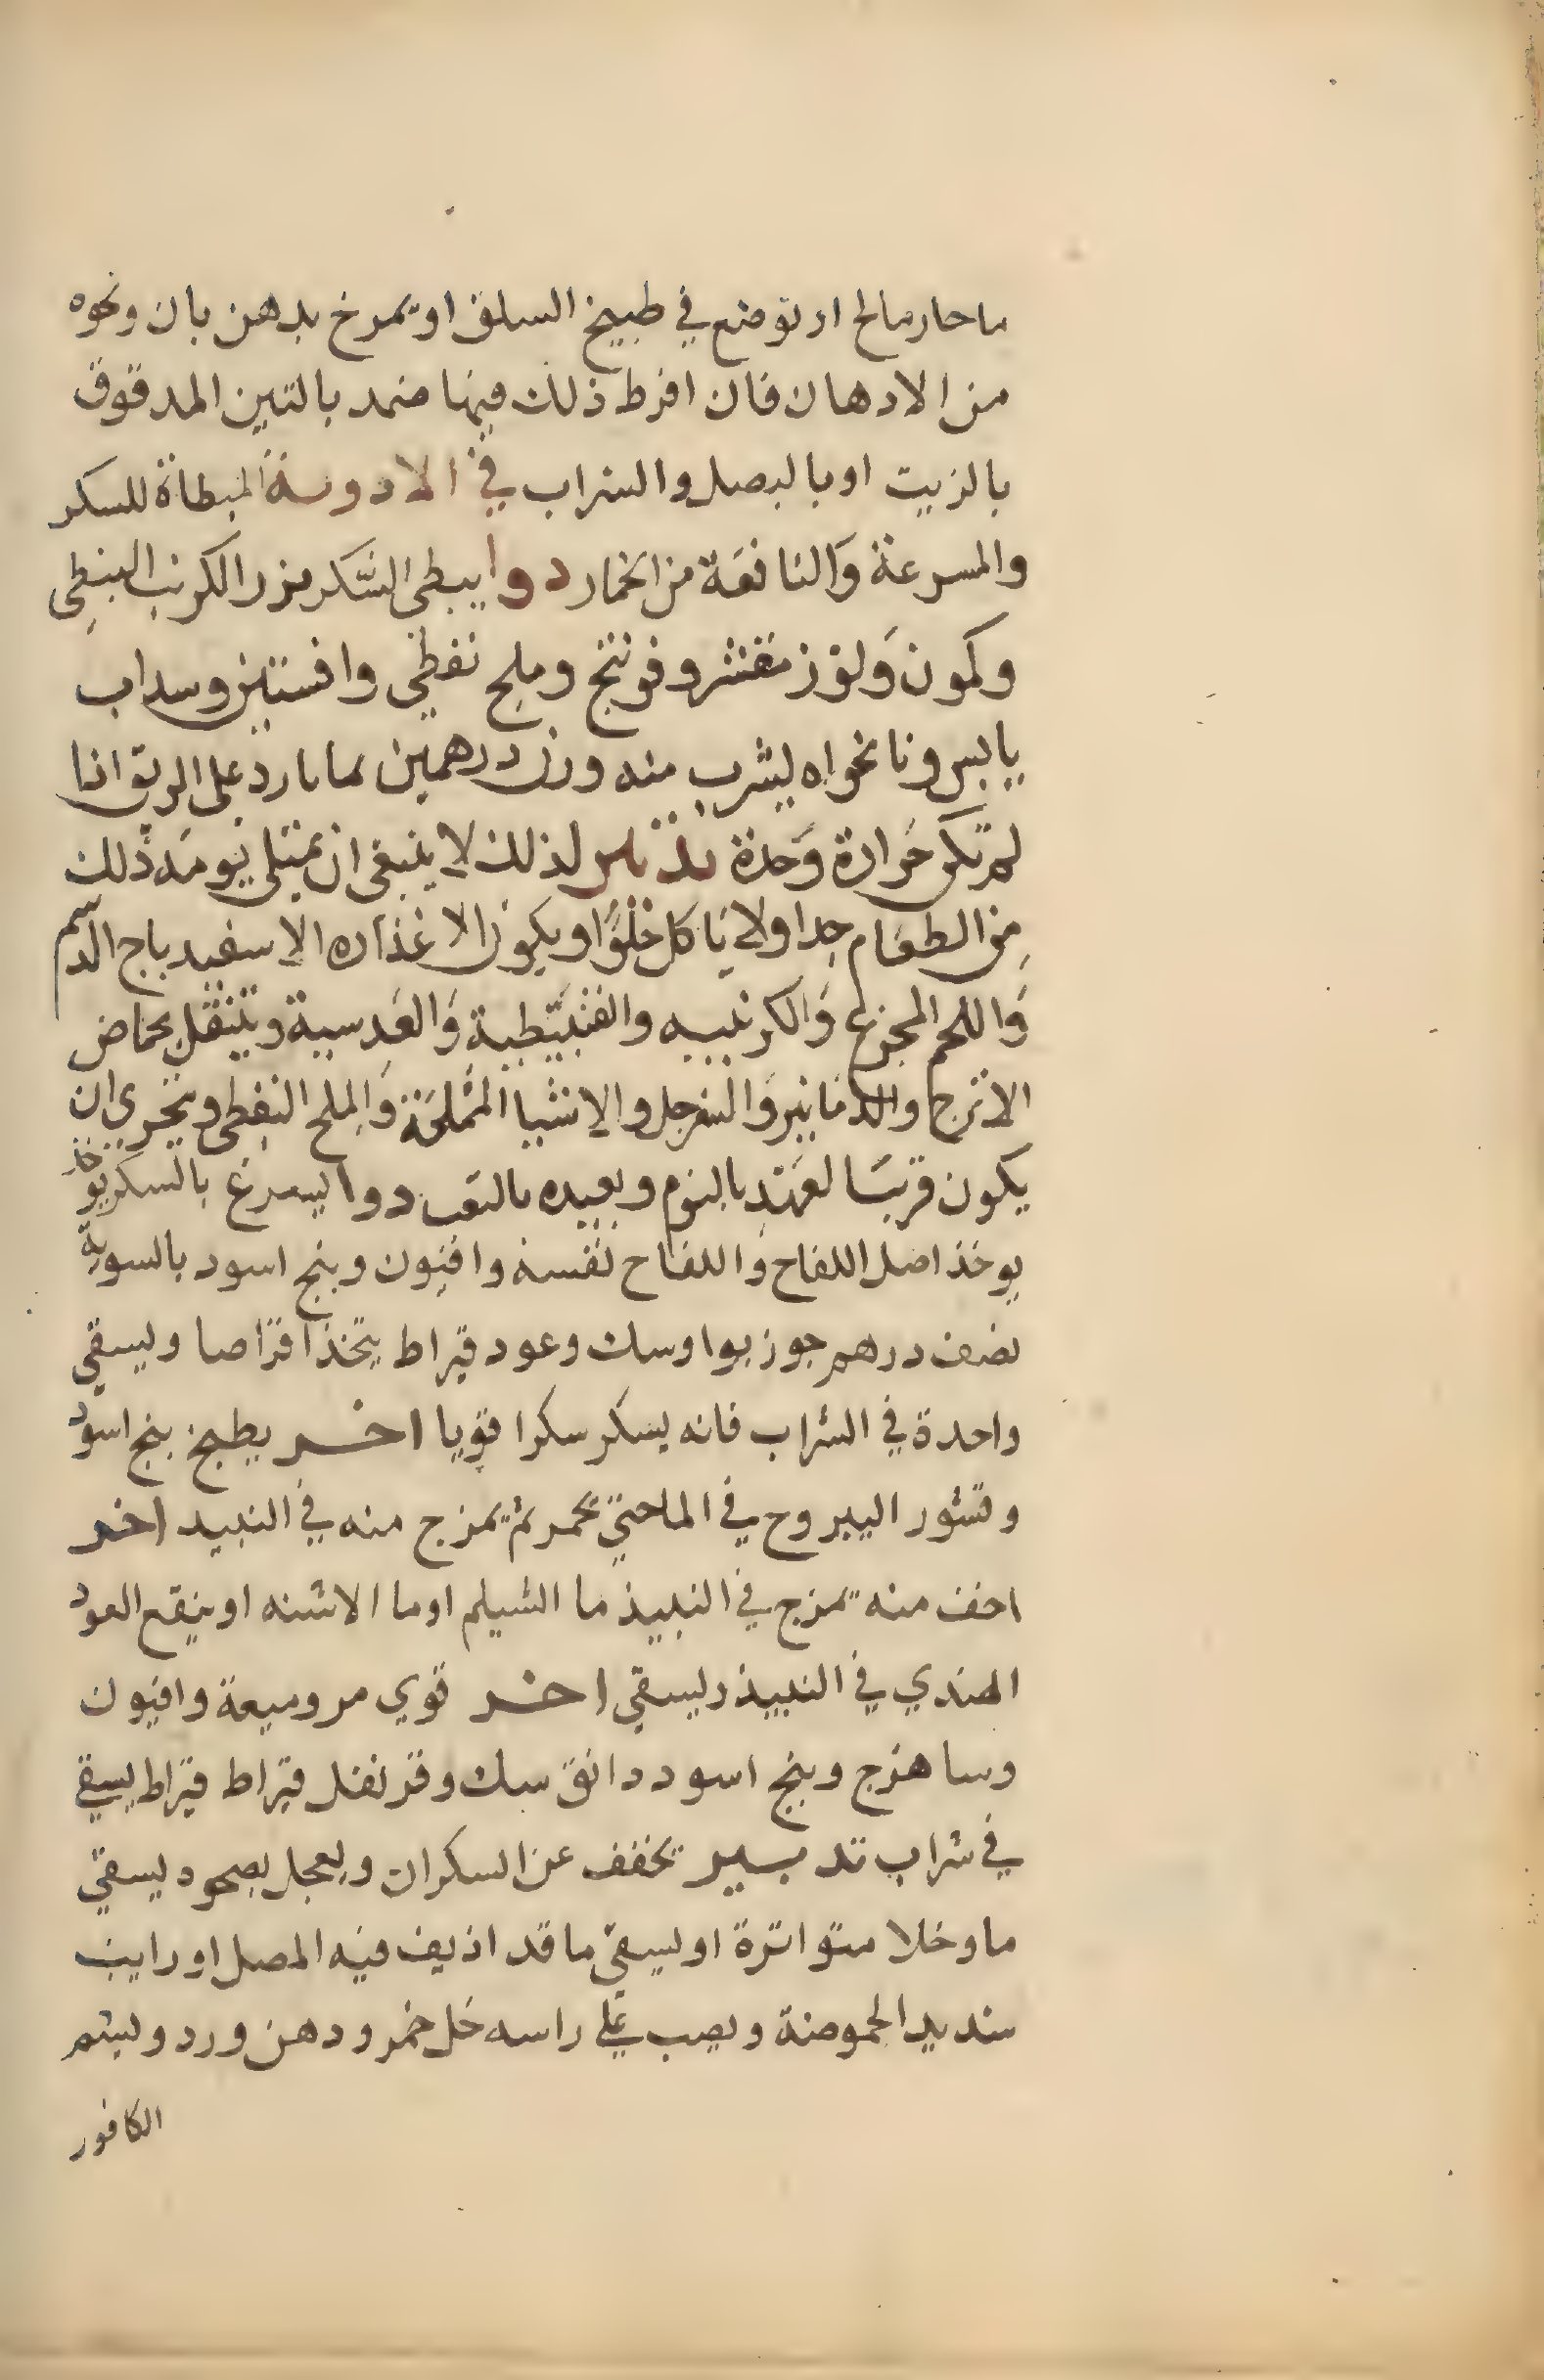 ما حار مالح او توضع في طبيخ السلق او يمرخ بدهن بان ونحوه
من الادهان فان افرط ذلك فيها ضمد بالتين المدقوق
بالزيت او بالبصل والشراب في الادوية المبطاة للسكر
والمسرعة وَالنافعَة من الخمار دوا يبطى السّكر بزر الكرنب النبطِي
وكمون وَلوز مقشر وفوتنج وملح نفطي وافسنتين وسداب
يابس ونانخواه يشرب منه وزن درهمين بما بارد على الريق اذا
لم تكن حَرارة وَحدة تدبير لذلك لا ينبغى ان يمتلى يومه ذلك
مِن الطعَام جدا ولا يَاكل خلوًا ويكون الاغذاه الاسفيدباج الدسم
وَاللحم المجزع وَالكرنبيه والقنبَّيطية وَالعَدسية ويتنقل بحماض
الاترج والدمانير وَالسفرجل والاشيا المُملحَة وَالملح النفطى ويتحرى ان
يكون قريبًا لعَهَد بالنوم وبعيده بالتعب دوا يسرع بالسكر يوخذ
يوخذ اصل اللفاح وَاللفاح نفسه وافيون وبنج اسود بالسوية
نصف درهم جوز بوا وسك وعود قيراط يتخذ اقراصا ويسقي
واحدة في الشراب فانه يسكر سكرا قويا اخر يطبخ بنج اسود
وقشور اليبروح في الما حتي يحمر ثم يمزج منه في النبيد اخر
اخف منه يمزج في النبيذ ما الشيلم او ما الاشنه او ينقع العود
الهندي في النبيذ ويسقي اخر قوي مر وميعة وافيون
وساهزج وبنج اسود دانق سك وقرنفل قيراط قيراط يسقي
في شراب تدبير يخفف عن السكران ويعجل بصحوه يسقي
ما وخلا متواترة او يسقي ما قد اذيف فيه المصل او رايب
شديد الحموضة ويصب علي راسه خل خمر ودهن ورد ويشم
الكافور